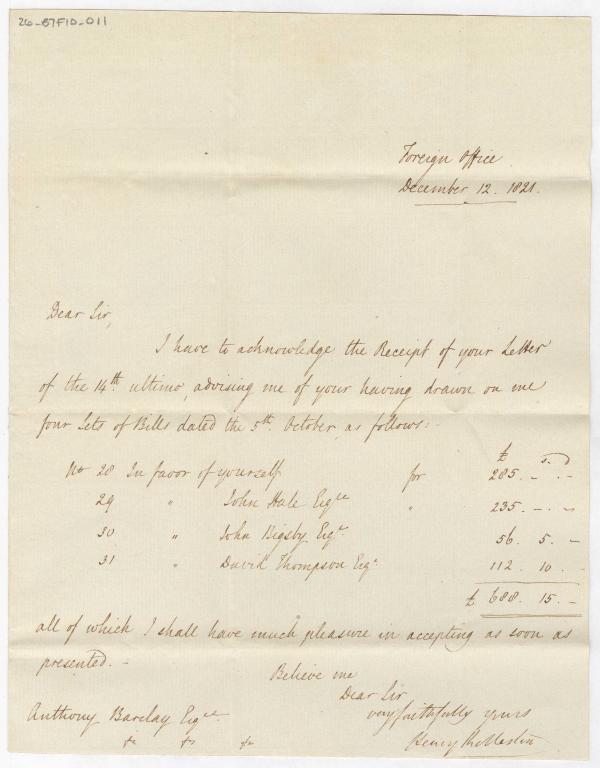 26-87F10-011
Foreign Office
December 12. 1821.
Dear Sir,
I have to acknowledge the Receipt of your Letter
of the 14th. ultimo, advising me of your having drawn on me
four Sets of Bills dated the 5th. October, as follows:-
£ s. D
No 28 In favor of yourself for 285. - . -
29 " John Hale Esqre " 235. - . -
30 " John Bigsby Esqr. 56. 5. -
31 " David Thompson Esqr. 112. 10. -
£ 688. 15. -
all of which I shall have much pleasure in accepting as soon as
presented. -
Believe me
Dear Sir
very faithfully yours
Anthony Barclay Esqre.
Henry